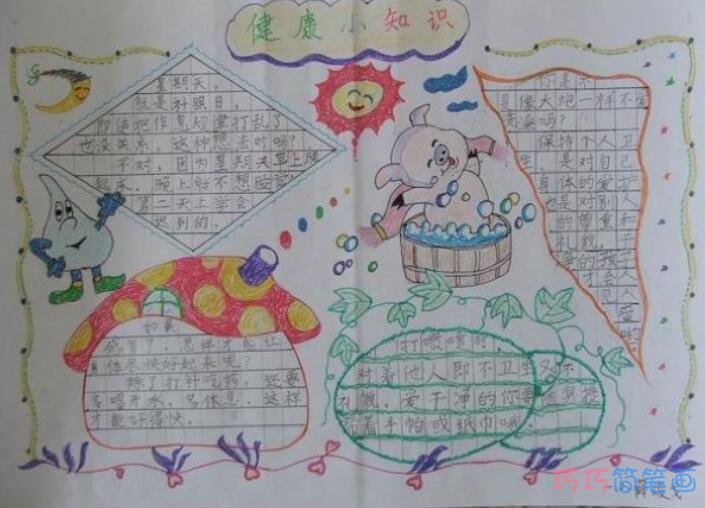 健康小知识
星期天,
就是补眼日,
即使把作息规律打乱了
也没关系,这种想法对吗?
不对,因为星期天早上
起床,晚上就不想
第二天上学会
迟到的。
你是不
是像大炮一样不爱
洗澡吗?
保持个人卫
生,是对自己
身体的爱护
也是对别人
的尊重和
礼貌。
如果
感冒了,怎样才能让
身体尽快好起来呢?
除了打针吃药,还要
多喝开水,多休息,这样
才能好得快。
打喷嚏时,
对着他人即不卫生又不
礼貌,爱干净的你要
带着手帕或纸巾哦。
巧巧简笔画